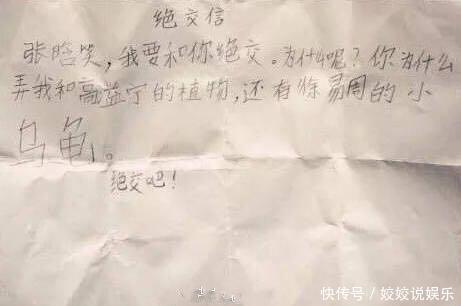 绝交信
张晗笑,我要和你绝交。为什么呢?你为什么
弄我和高益宁的植物,还有徐易周的小
乌龟。
绝交吧!
快传号/姣姣说娱乐